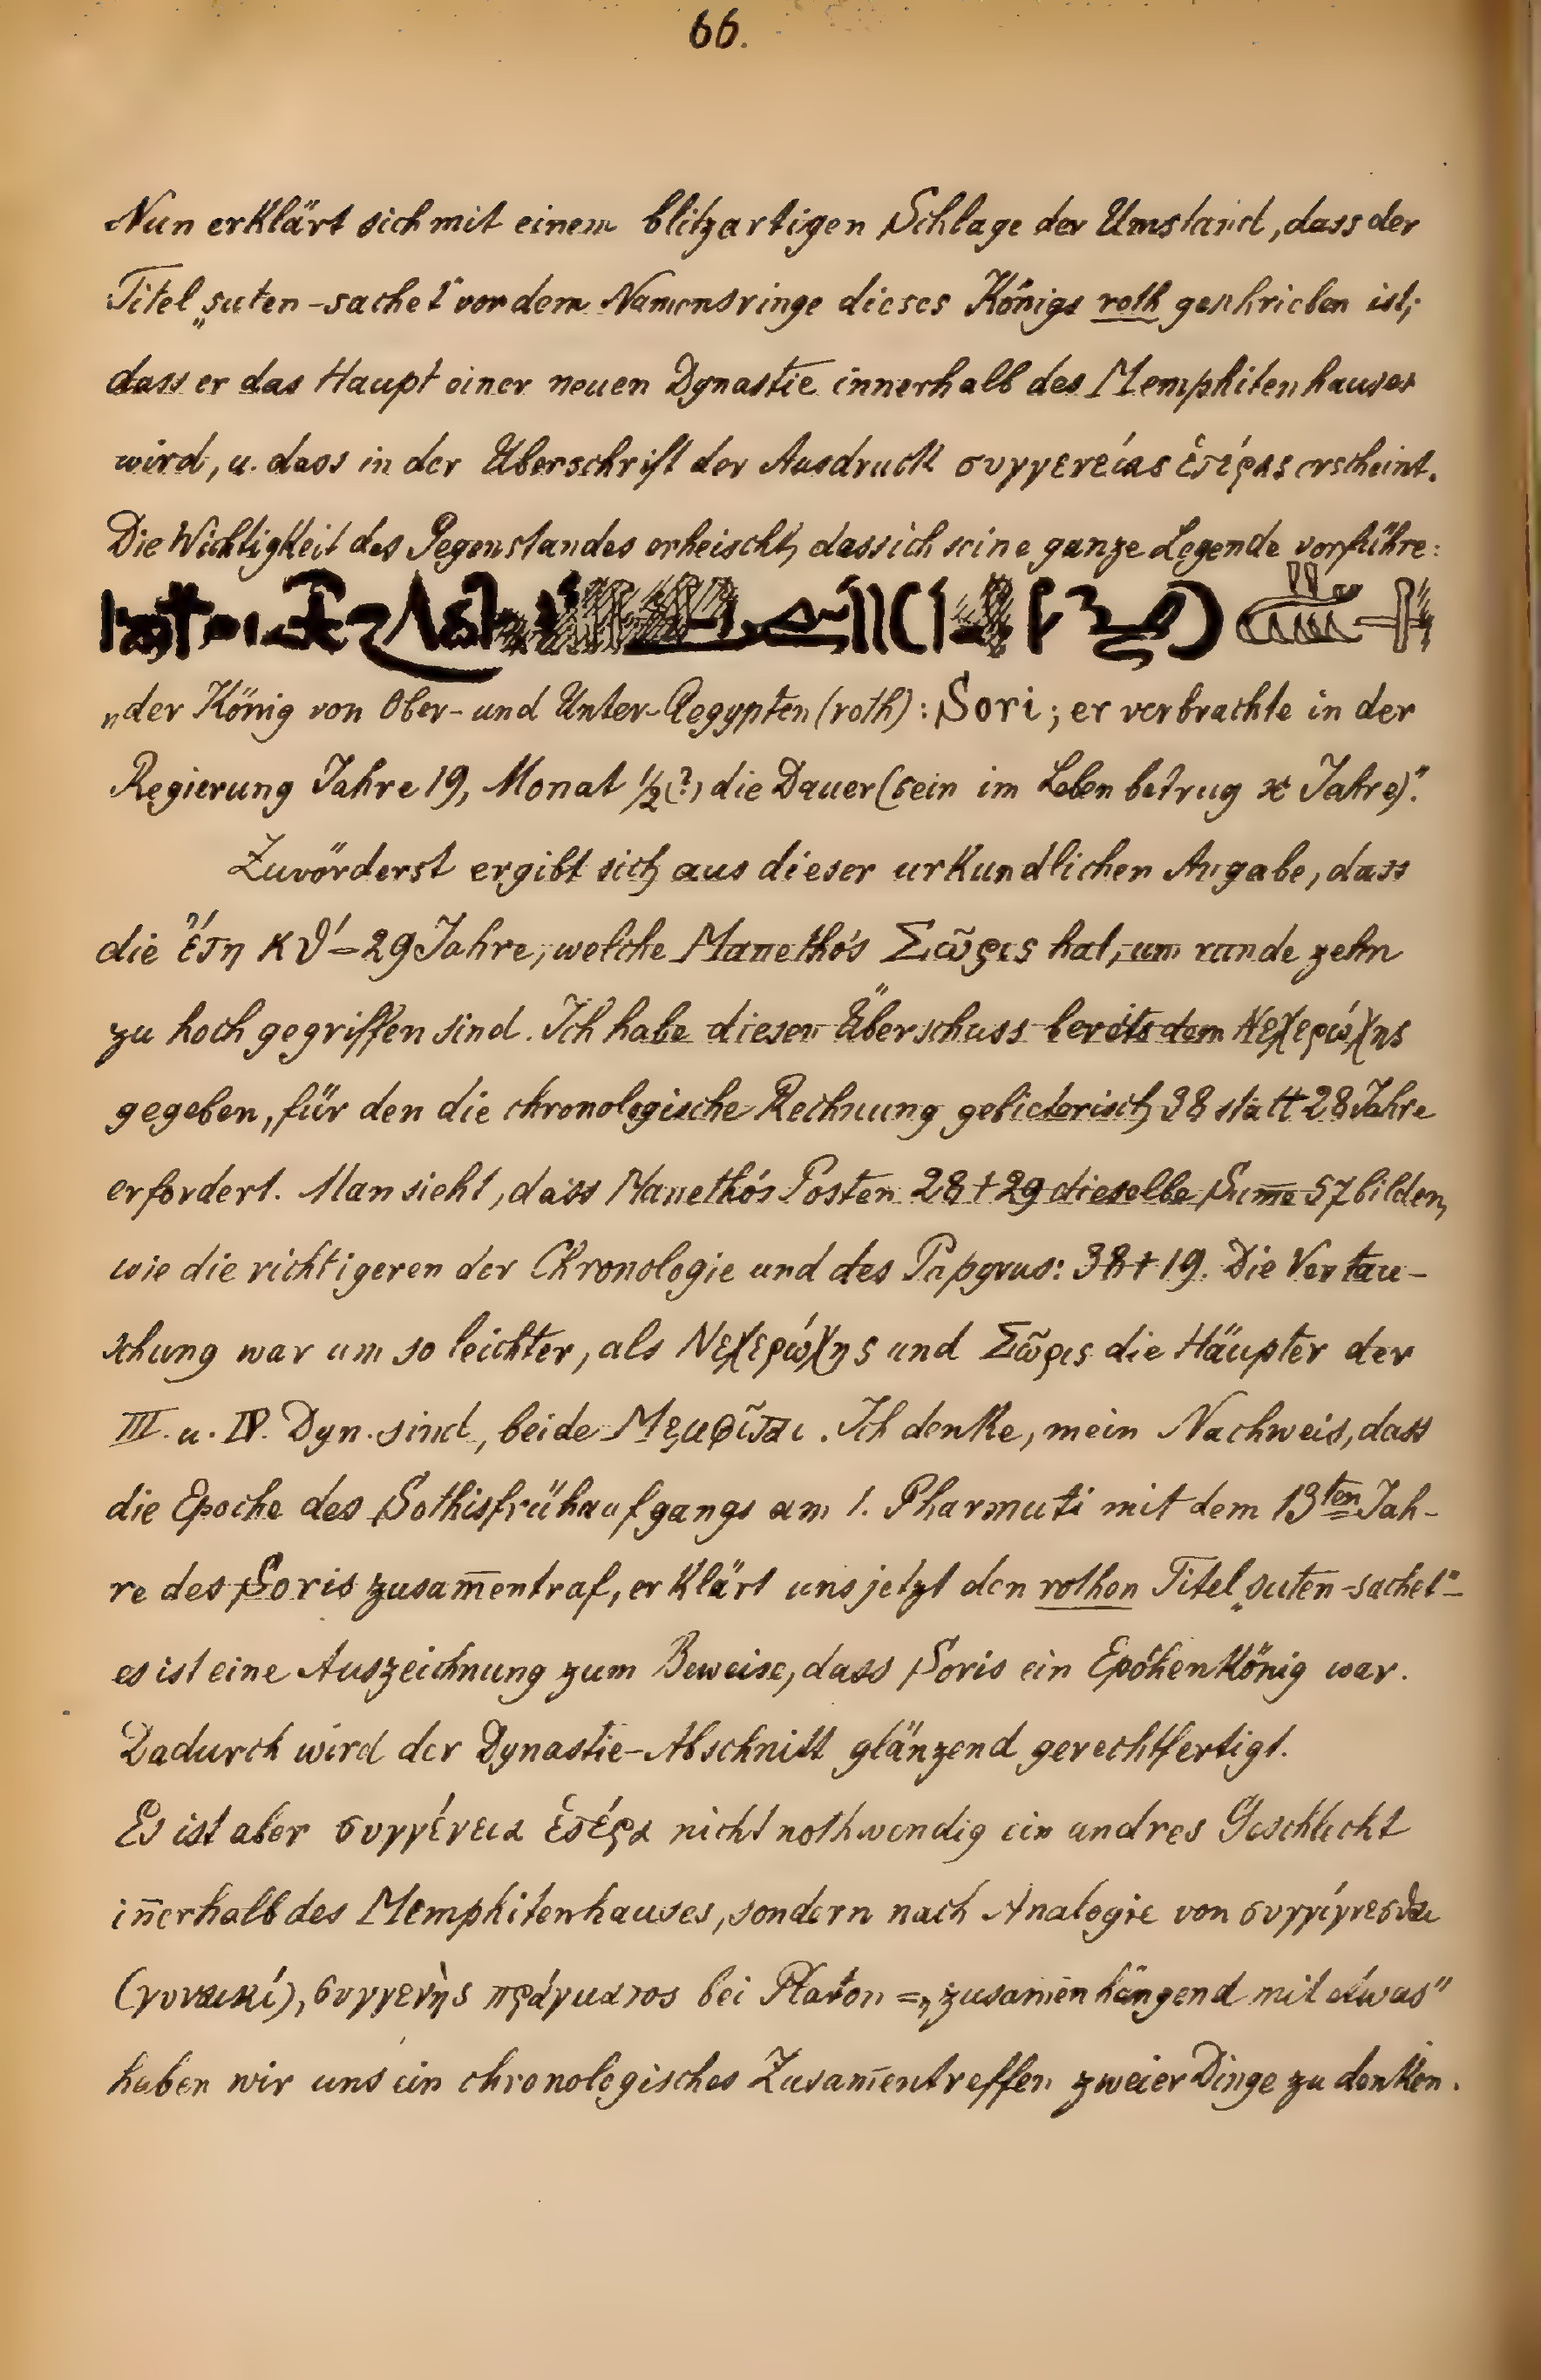 66.
Nun erklärt sich mit einem blitzartigen Schlage der Umstand, dass der
Titel „suten-sachet“ vor dem Namensringe dieses Königs roth geschrieben ist;
dass er das Haupt einer neuen Dynastie innerhalb des Memphitenhauses
wird, u. dass in der Überschrift der Ausdruck συγγενείας ἑτέρας erscheint.
Die Wichtigkeit des Gegenstandes erheischt, dass ich seine ganze Legende vorführe:
„der König von Ober- und Unter-Aegypten (roth): Sori; er verbrachte in der
Regierung Jahre 19, Monat ½(?), die Dauer (sein im Leben betrug x Jahre)“.
Zuvörderst ergibt sich aus dieser urkundlichen Angabe, dass
die ἔτη κθ′ = 29 Jahre, welche Manethós Σῶρις hat, um runde zehn
zu hoch gegriffen sind. Ich habe diesen Überschuss bereits dem Νεχερώχης
gegeben, für den die chronologische Rechnung gebieterisch 38 statt 28 Jahre
erfordert. Man sieht, dass Manethós Posten 28 + 29 dieselbe Sum̄e 57 bilden,
wie die richtigeren der Chronologie und des Papyrus: 38 + 19. Die Vertau-
schung war um so leichter, als Νεχερώχης und Σῶρις die Häupter der
III. u. IV. Dyn. sind, beide Μεμφῖται. Ich denke, mein Nachweis, dass
die Epoche des Sothisfrühaufgangs am 1. Pharmuti mit dem 13ten Jah-
re des Soris zusam̄entraf, erklärt uns jetzt den rothen Titel „suten-sachet“ –
es ist eine Auszeichnung zum Beweise, dass Soris ein Epóhenkönig war.
Dadurch wird der Dynastie-Abschnitt glänzend gerechtfertigt.
Es ist aber συγγένεια ἑτέρα nicht nothwendig ein andres Geschlecht
in̄erhalb des Memphitenhauses, sondern nach Analogie von συγγίγνεσθαι
(γυναικί), συγγενὴς πράγματος bei Platon = „zusam̄enhängend mit etwas“
haben wir uns ein chronologisches Zusam̄entreffen zweier Dinge zu denken.